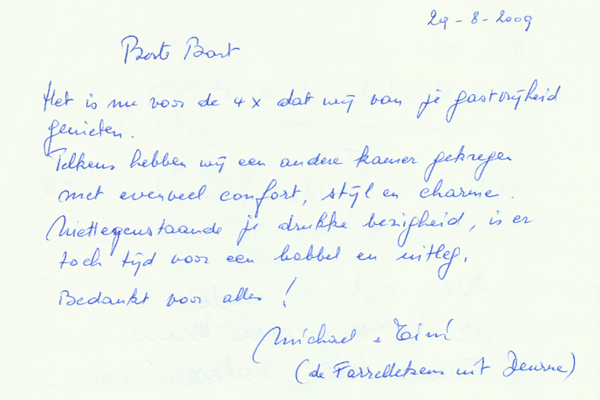 29-8-2009
Beste Bart
Het is nu voor de 4x dat wij van je gastvrijheid
genieten.
Telkens hebben wij een andere kamer gekregen
met evenveel comfort, stijl en charme.
Niettegenstaande je drukke bezigheid, is er
toch tijd voor een babbel en uitleg.
Bedankt voor alles!
Michael &
(de uit Deurne)